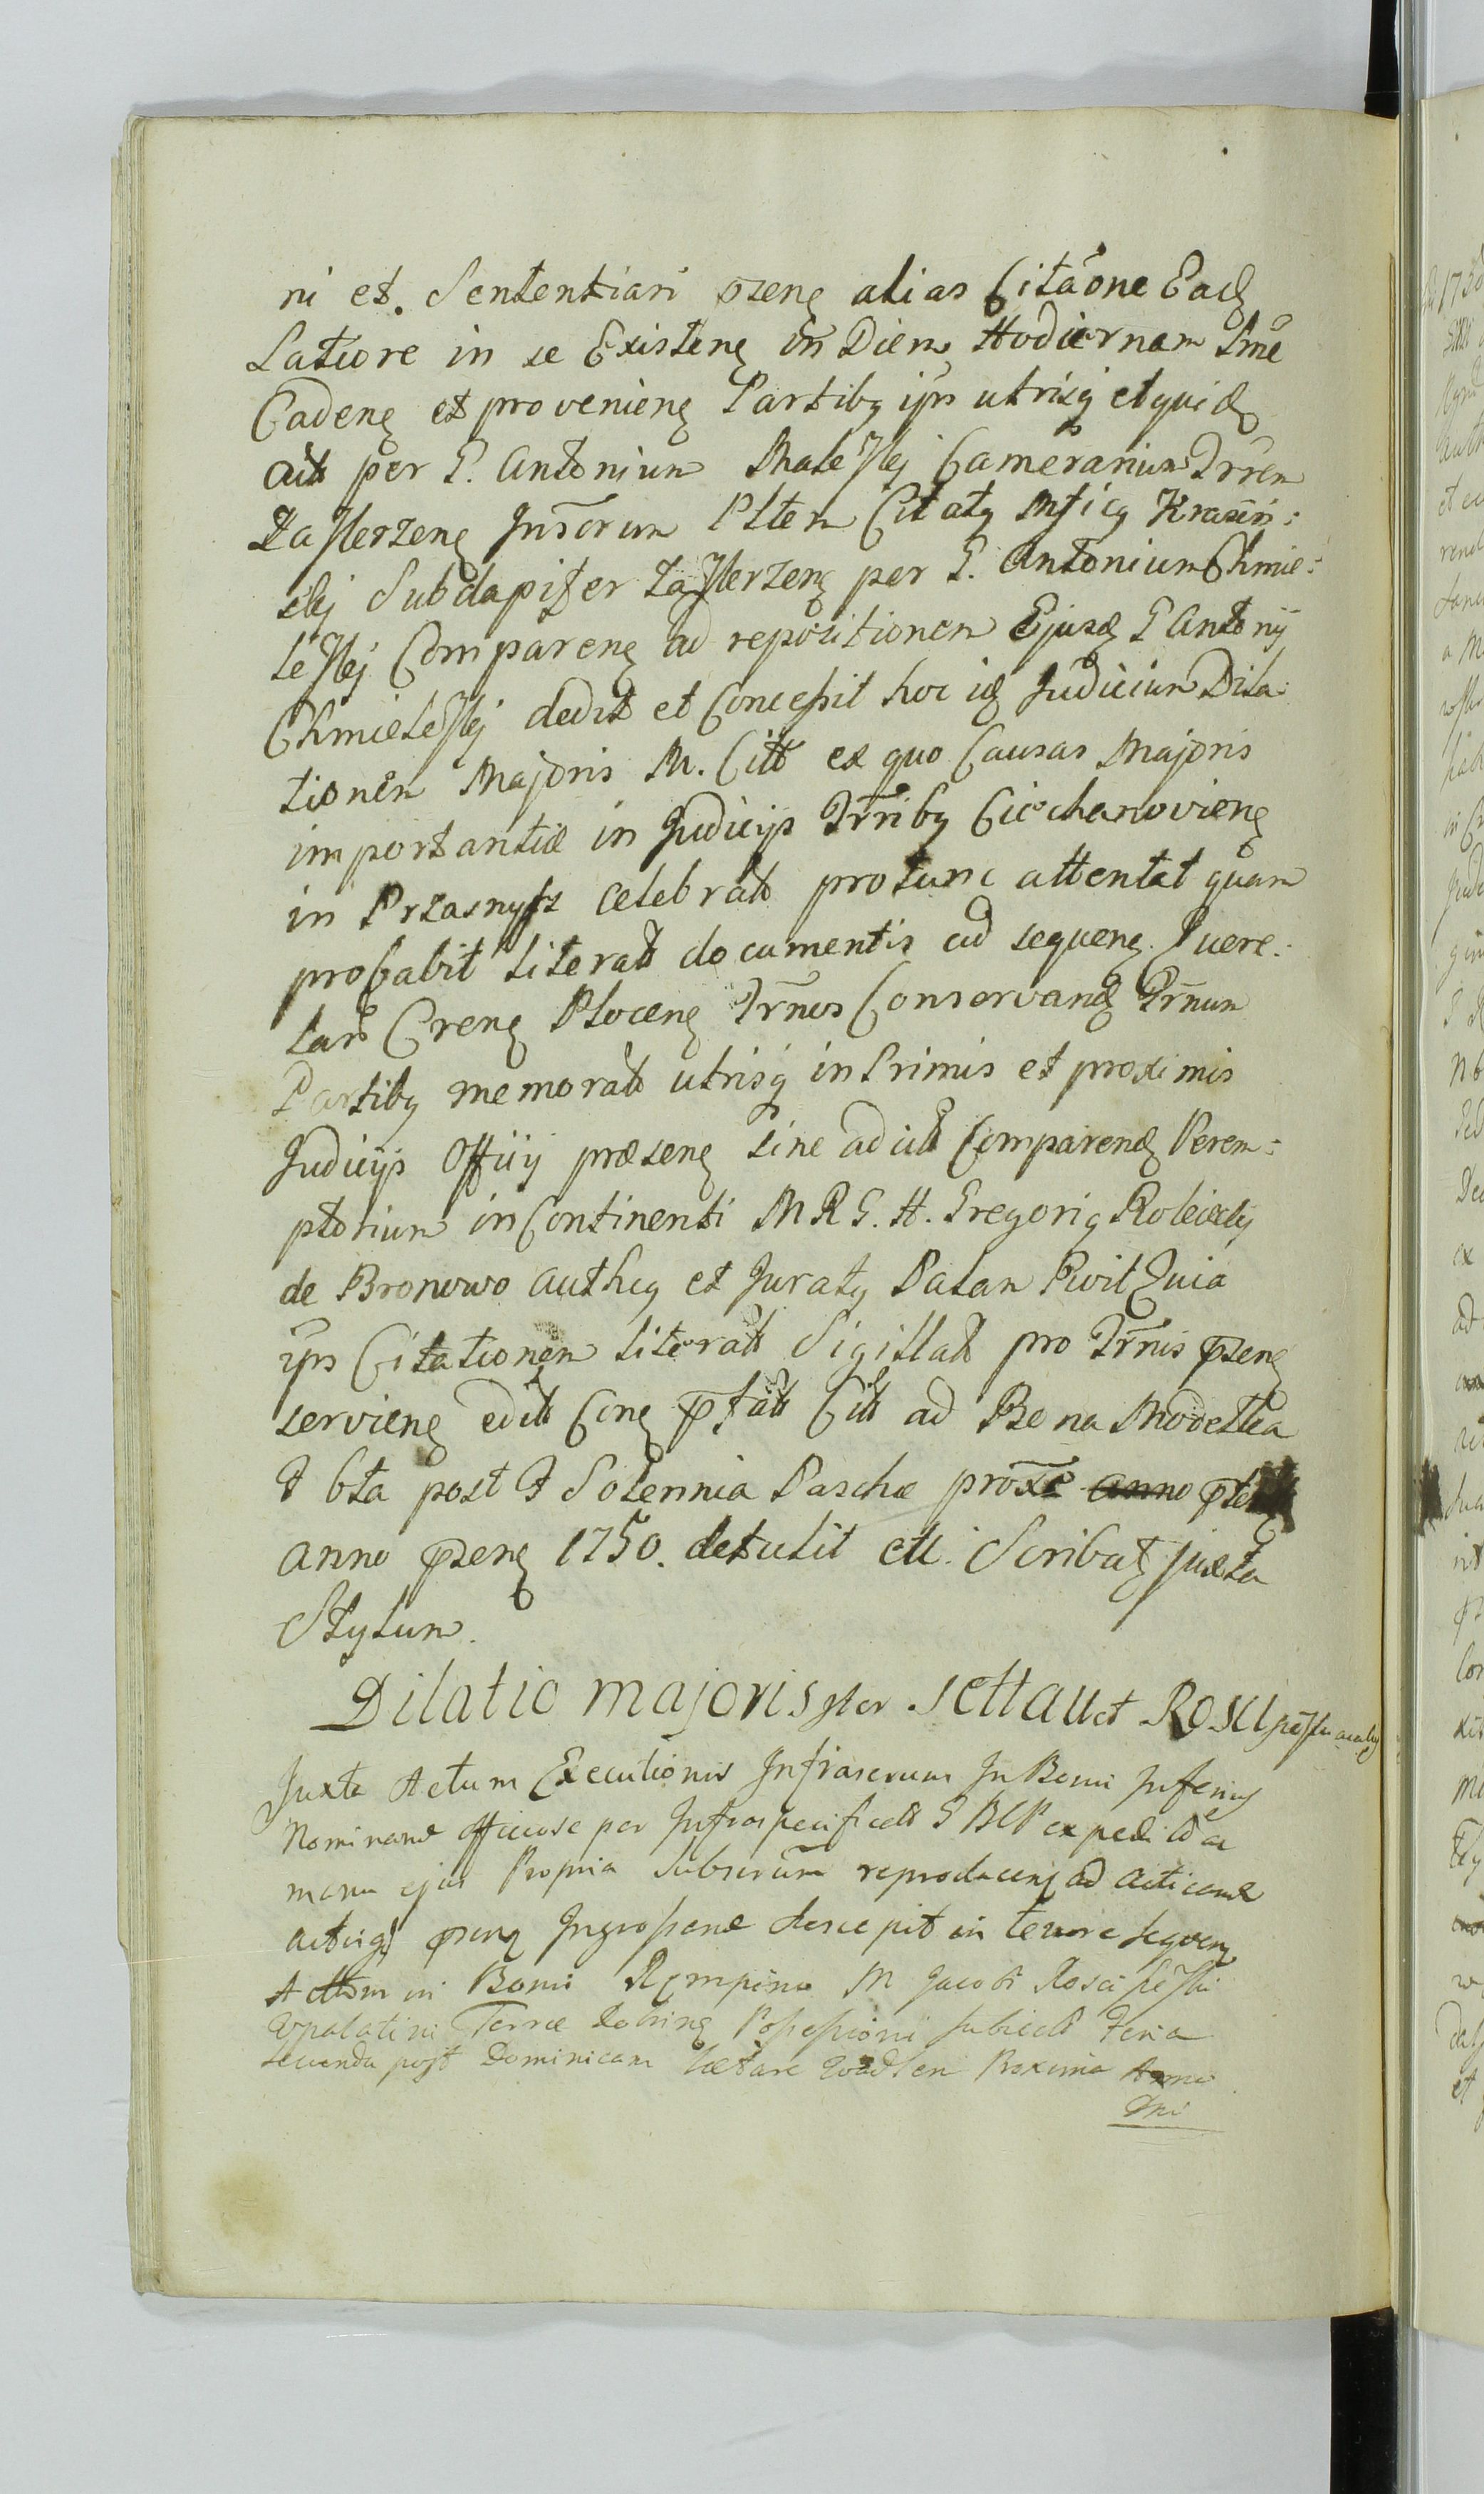 ni et. Sententiari pzenę alias Citãone Eadę
Latiore in se Existenę in Diem Hodiernam Lmẽ
Cadenę et provenienę Partibq ipis utrisq et quidę
att per G. Antonium Maleskj Camerarium Trren
Zaskrzenę Insorum Plten Citatq Mficq Krasiń:
skj Subdapifer Zaskrzenę per G. Antonium Chmie:
leskj Comparenę ad repositionem Ejusd G Antonij
Chmieleskj dedit et Concessit hoc id Judicium Dila:
tionem Majoris M. Citt ex quo Causas Majoris
importantiæ in Judicijs Trribq Ciechanovienę
in Przasnysz celebratt protunc attentat quam
probabit literatt documentis ad sequenę Quere:
lam Crenę Plocenę Trnos Conservand Trnum
Partibq memoratt utrisq in Primis et proximis
Judicijs Officij præsenę sine adcitt Comparend Perem:
ptorium in Continenti M R G. H. Gregoriq Roleicki
de Bronowo authcq et Juratq Palam Rvit Quia
ips Citationem literatt Sigillatt pro Trnis pzenę
servienę editt Conę pfatt Citt ad Bona Modetka
F 6ta post F Solennia Paschæ proxe anno
anno pzenę 1750. detulit ett. Scribatq juxta
Stylum.
Dilatio majoris inter Settau et Rosci
Juxta Actum Executionis Infrascrum In Bonis Inferiq
Nominand officiose per Infraspecificatt G BCP expeditt ac
manu ejus Propria Subscrium reproducenę ad acticand
actisq pzenę Ingrossand suscepit in tenore sequenę
Actum in Bonis Rempino M Jacobi Rosciszeski
Terræ Possessioni subiectt Feria
secunda post Dominicam Lætare Quadlen Proxima Anno
Dni